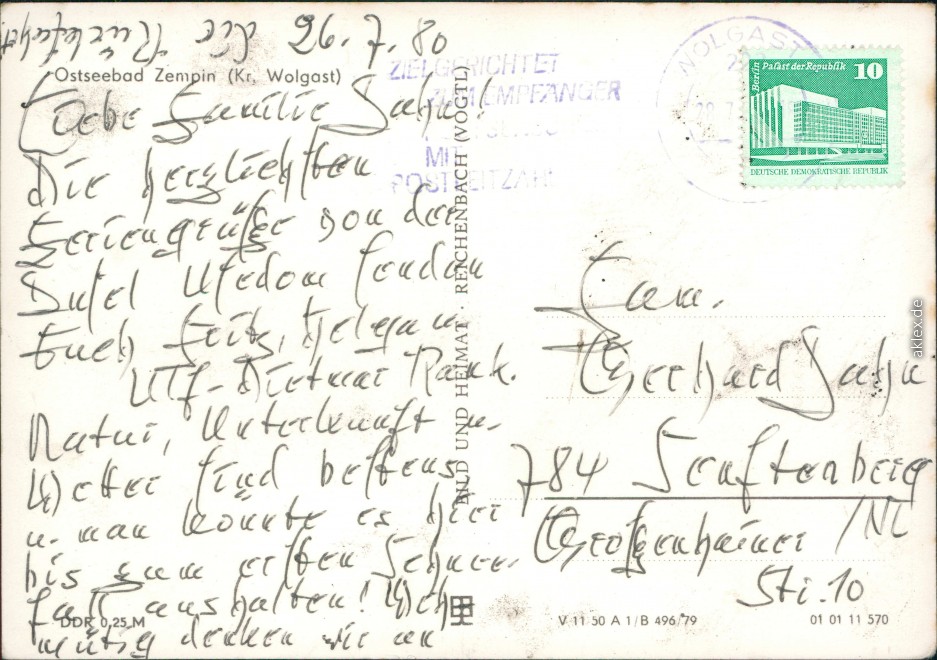 26. 7. 80
Ostseebad Zempin (Kr. Wolgast)
Liebe Familie Jahn!
Die herzlichsten
Feriengrüße von der
Insel Usedom senden
Euch Fritz, Helga u.
Ulf-Dietmar Rank.
Natur, Unterkunft u.
Wetter sind bestens
u. man könnte es hier
bis zum ersten Schnee-
fall aushalten! Weh-
mütig denken wir an
die Rückfahrt
DDR 0,25 M
BILD UND HEIMAT · REICHENBACH (VOGTL)
ZIELGERICHTET
ZUM EMPFÄNGER
MIT
POSTLEITZAHL
WOLGAST
Berlin
Palast der Republik
10
DEUTSCHE DEMOKRATISCHE REPUBLIK
Fam.
Gerhard Jahn
784 Senftenberg /NL
Großenhainer
Str. 10
V 11 50 A 1/B 496/79
01 01 11 570
aklex.de